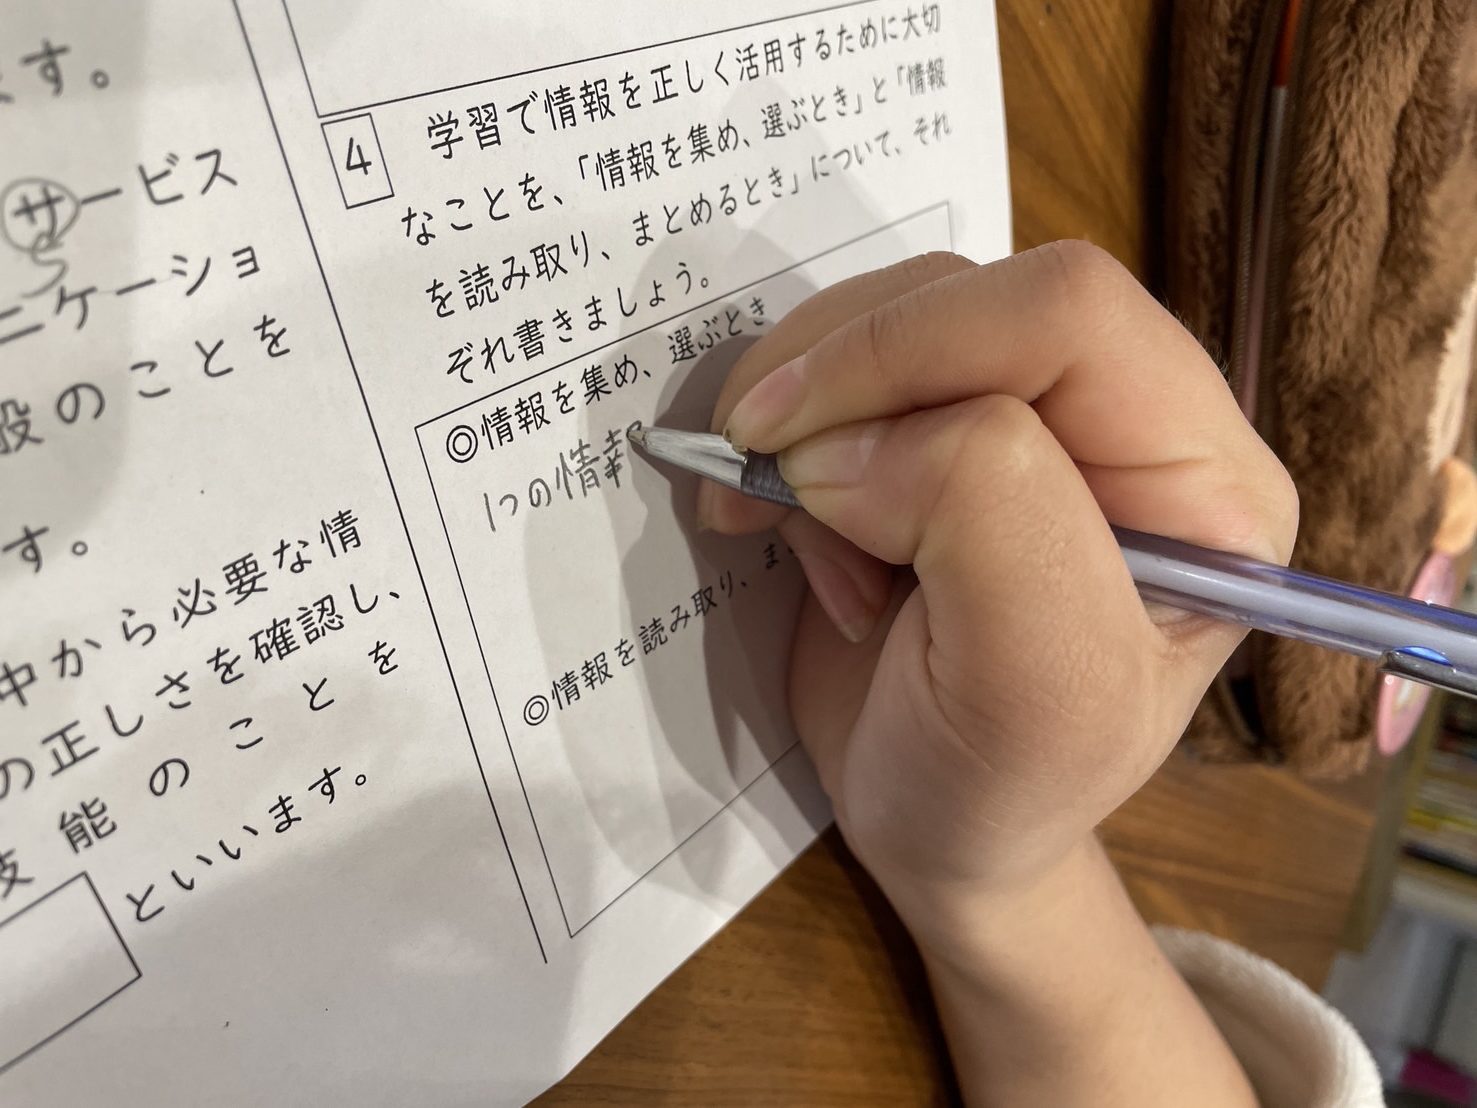 ます。
サービス
ニケーショ
段のことを
す。
中から必要な情
の正しさを確認し、
技能のことを
といいます。
4
学習で情報を正しく活用するために大切
なことを、「情報を集め、選ぶとき」と「情報
を読み取り、まとめるとき」について、それ
ぞれ書きましょう。
◎情報を集め、選ぶとき
1つの情報
◎情報を読み取り、ま